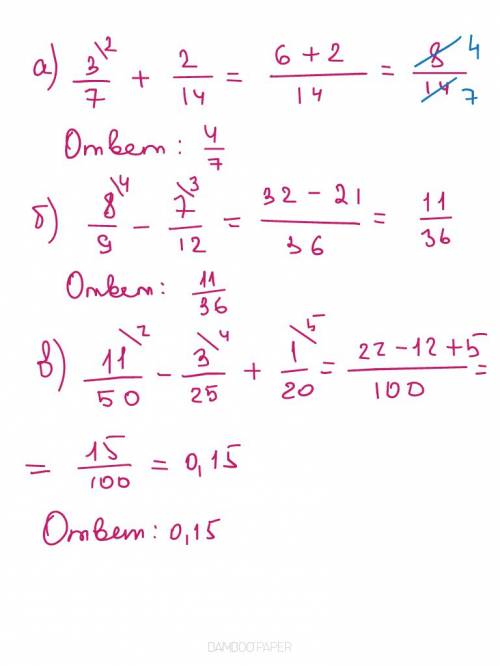 а) 3\2/7 + 2/14 = 6 + 2/14 = 8/14 4/7
Ответ: 4/7
б) 8\4/9 - 7\3/12 = 32 - 21/36 = 11/36
Ответ: 11/36
в) 11\2/50 - 3\4/25 + 1\5/20 = 22 - 12 + 5/100 =
= 15/100 = 0,15
Ответ: 0,15
BAMBOOPAPER